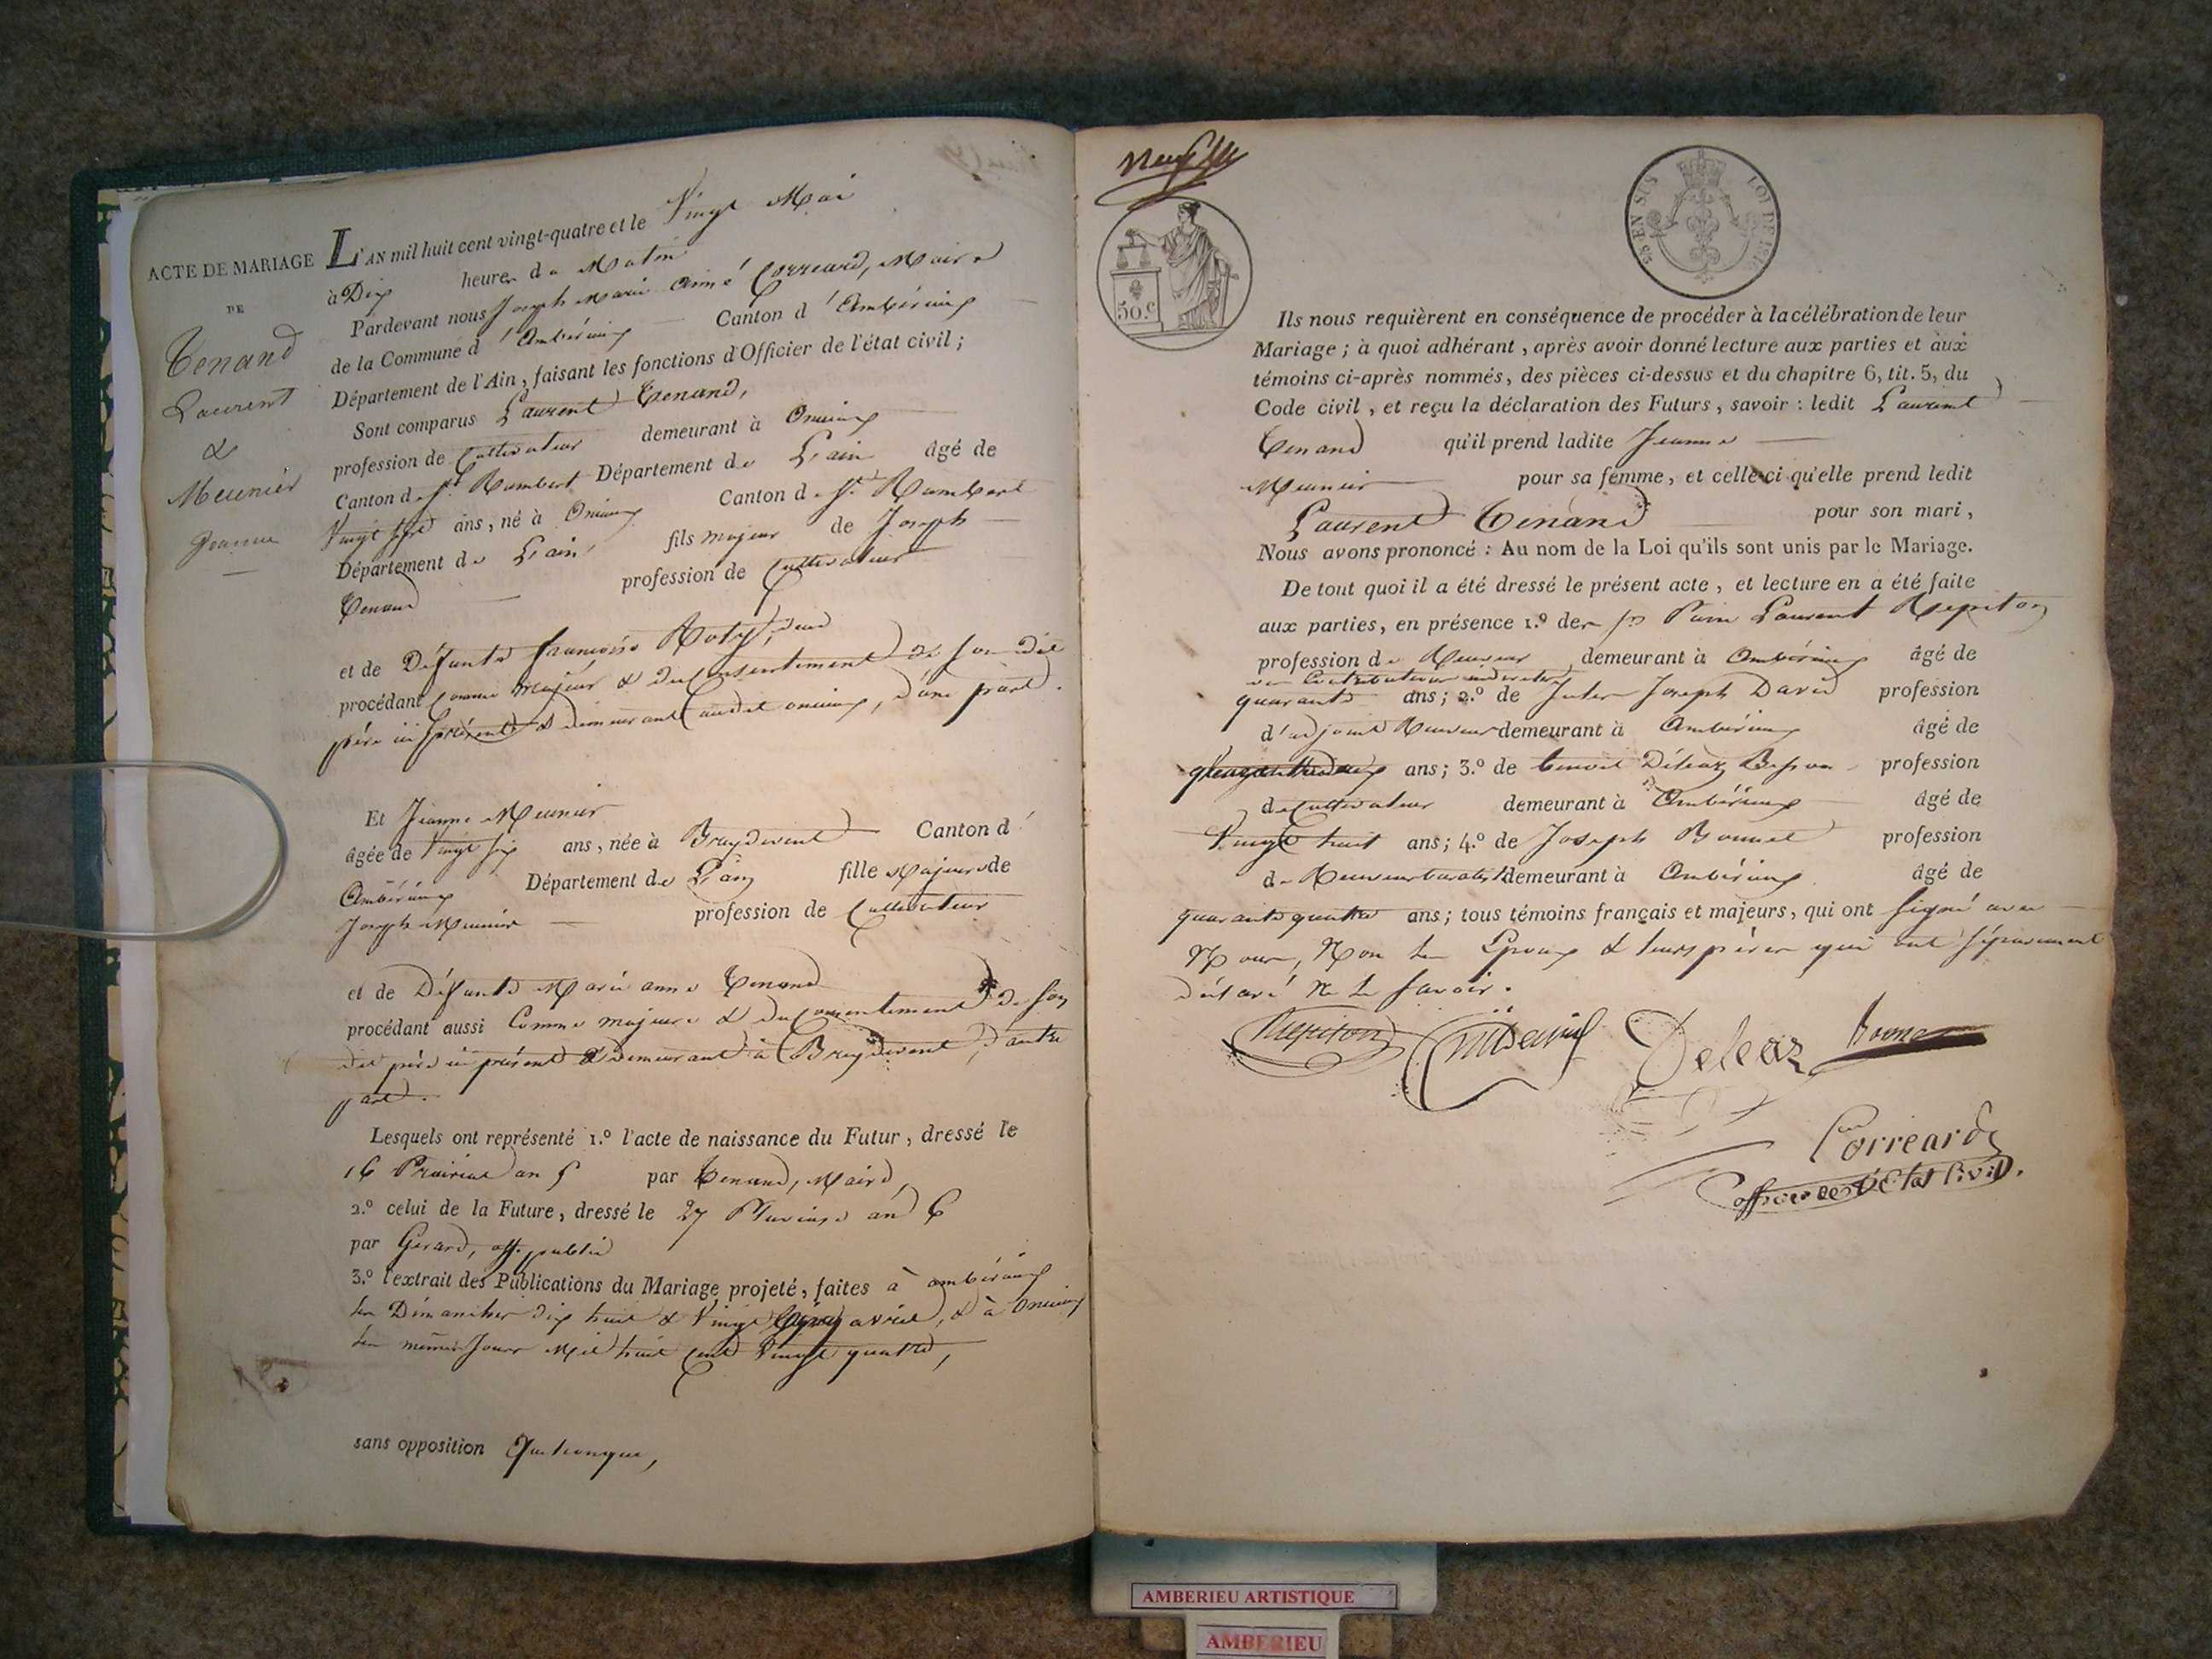 ACTE DE MARIAGE
DE
Tenand
Laurent
&
Meunier
Jeanne
L'AN mil huit cent vingt-quatre et le Vingt Mai
à Dix heures du Matin
Pardevant nous Joseph Marie Aimé Correard, Maire
de la Commune d'Ambérieux Canton d'Ambérieux
Département de l'Ain, faisant les fonctions d'Officier de l'état civil;
Sont comparus Laurent Tenand,
profession de Cultivateur demeurant à Oncieux
Canton de St Rambert Département de L'ain âgé de
Vingt sept ans, né à Oncieux Canton de St Rambert
Département de L'ain fils majeur de Joseph
Tenand profession de Cultivateur
et de Défunte francoise
procédant comme majeur & du consentement de son dit
père ici présent & demeurant audit oncieux, d'une part.
Et Jeanne Meunier
âgée de Vingt six ans, née à Breydevent Canton d'
Ambérieux Département de L'ain fille Majeure de
Joseph Meunier profession de Cultivateur
et de Défunte Marie anne Tenand
procédant aussi Comme majeure & du consentement de son
dit père ici présent & demeurant à Breydevent, d'autre
part.
Lesquels ont représenté 1.º l'acte de naissance du Futur, dressé le
16 Prairial an 5 par Tenand, Maire,
2.º celui de la Future, dressé le 27 Pluviose an 6
par Gerard, off. public
3.º l'extrait des Publications du Mariage projeté, faites à ambérieux
les Dimanches dix huit & Vingt cinq avril, & à Oncieux
les mêmes Jours Mil huit Cent Vingt quatre,
sans opposition Quelconque,
50.c
LOI DE 1816
Ils nous requièrent en conséquence de procéder à la célébration de leur
Mariage; à quoi adhérant, après avoir donné lecture aux parties et aux
témoins ci-après nommés, des pièces ci-dessus et du chapitre 6, tit. 5, du
Code civil, et reçu la déclaration des Futurs, savoir: ledit Laurent
Tenand qu'il prend ladite Jeanne
Meunier pour sa femme, et celle-ci qu'elle prend ledit
Laurent Tenand pour son mari,
Nous avons prononcé: Au nom de la Loi qu'ils sont unis par le Mariage.
De tout quoi il a été dressé le présent acte, et lecture en a été faite
aux parties, en présence 1.º des Srs Pierre Laurent Repiton
profession de Receveur demeurant à Ambérieux âgé de
des Contributions indirectes
quarante ans; 2.º de Jules Joseph David profession
d'adjoint Receveur demeurant à Ambérieux âgé de
ans; 3.º de benoit Déléaz profession
de Cultivateur demeurant à Ambérieux âgé de
Vingt huit ans; 4.º de Joseph Bonnet profession
de Receveur buraliste demeurant à Ambérieux âgé de
quarante quatre ans; tous témoins français et majeurs, qui ont signé avec
Nous, Non les Epoux & leurs pères qui ont séparément
déclaré Ne le savoir.
Repiton David Deleaz Bonnet
Correard
officier de l'Etat Civil.
AMBERIEU ARTISTIQUE
AMBERIEU